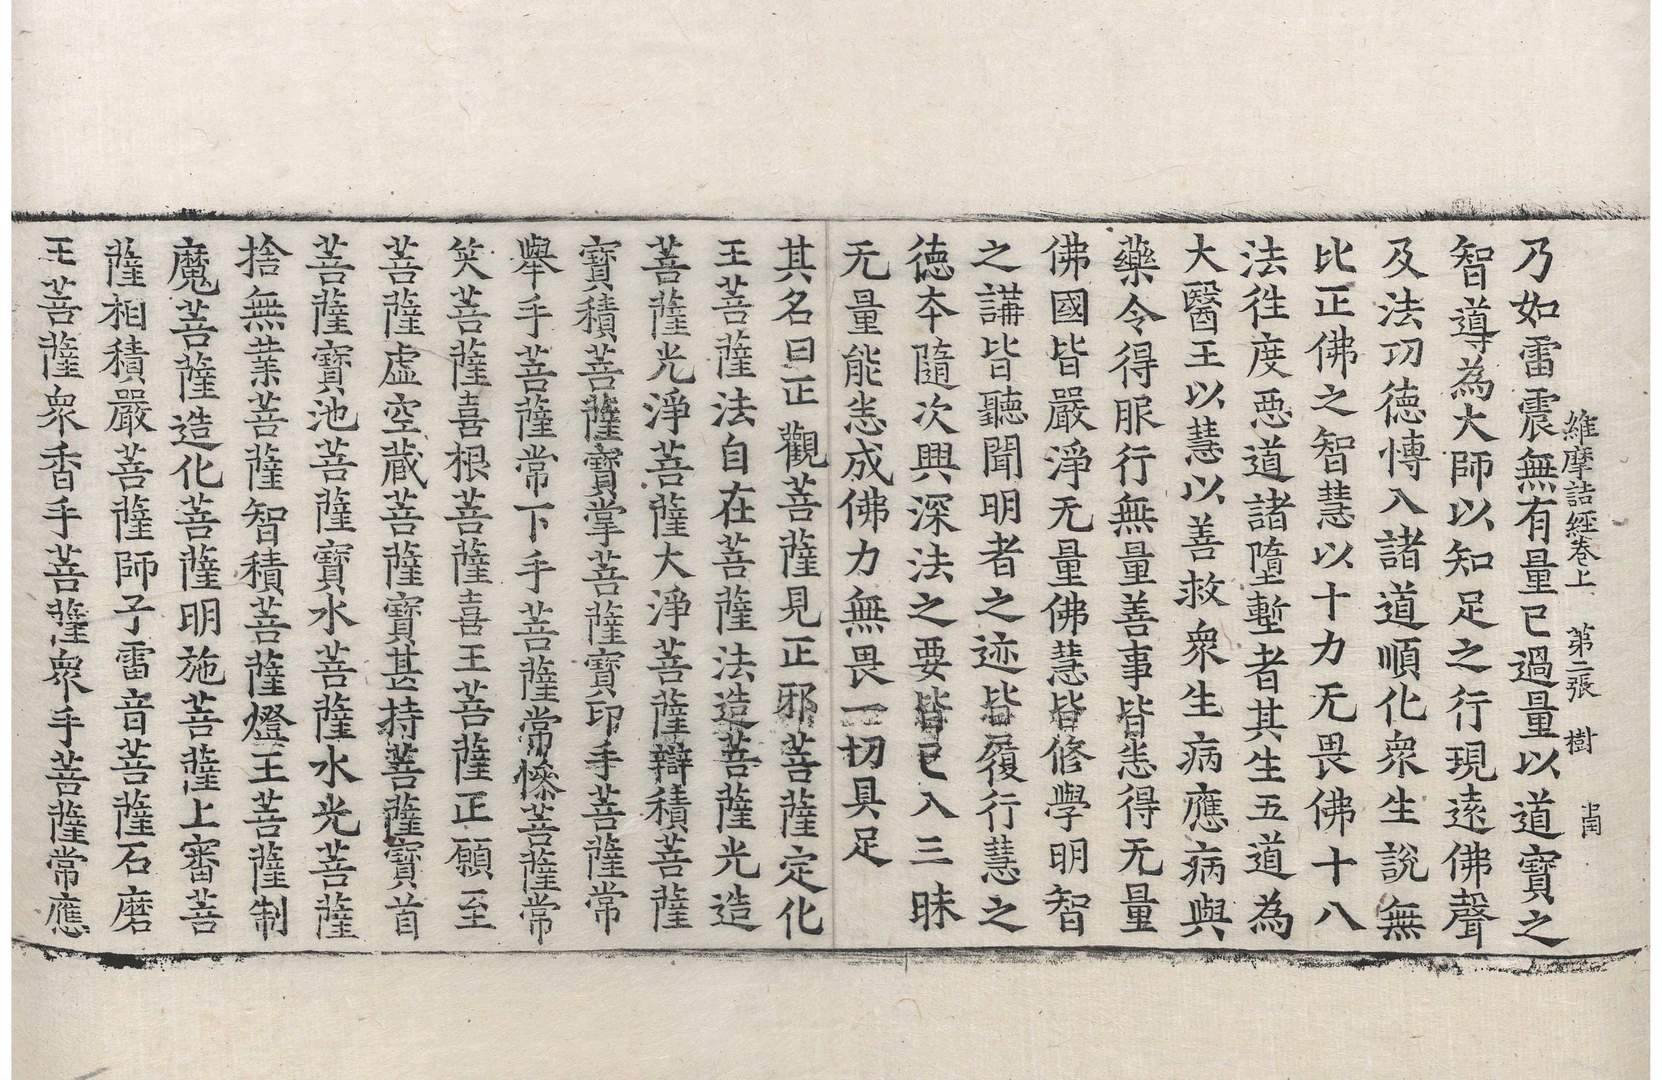 維摩詰經卷上 第二張 樹
乃如雷震無有量已過量以道寶之
智導為大師以知足之行現遠佛聲
及法功德博入諸道順化衆生說無
比正佛之智慧以十力无畏佛十八
法往度惡道諸墮塹者其生五道為
大醫王以慧以善救衆生病應病與
藥令得服行無量善事皆恙得无量
佛國皆嚴淨无量佛慧皆修學明智
之講皆聽聞明者之迹皆履行慧之
德本隨次興深法之要皆已入三昧
无量能恙成佛力無畏一切具足
其名曰正觀菩薩見正邪菩薩定化
王菩薩法自在菩薩法造菩薩光造
菩薩光淨菩薩大淨菩薩辯積菩薩
寶積菩薩寶掌菩薩寶印手菩薩常
舉手菩薩常下手菩薩常慘菩薩常
笑菩薩喜根菩薩喜王菩薩正願至
菩薩虛空藏菩薩寶甚持菩薩寶首
菩薩寶池菩薩寶水菩薩水光菩薩
捨無業菩薩智積菩薩燈王菩薩制
魔菩薩造化菩薩明施菩薩上審菩
薩相積嚴菩薩師子雷音菩薩石磨
王菩薩衆香手菩薩衆手菩薩常應